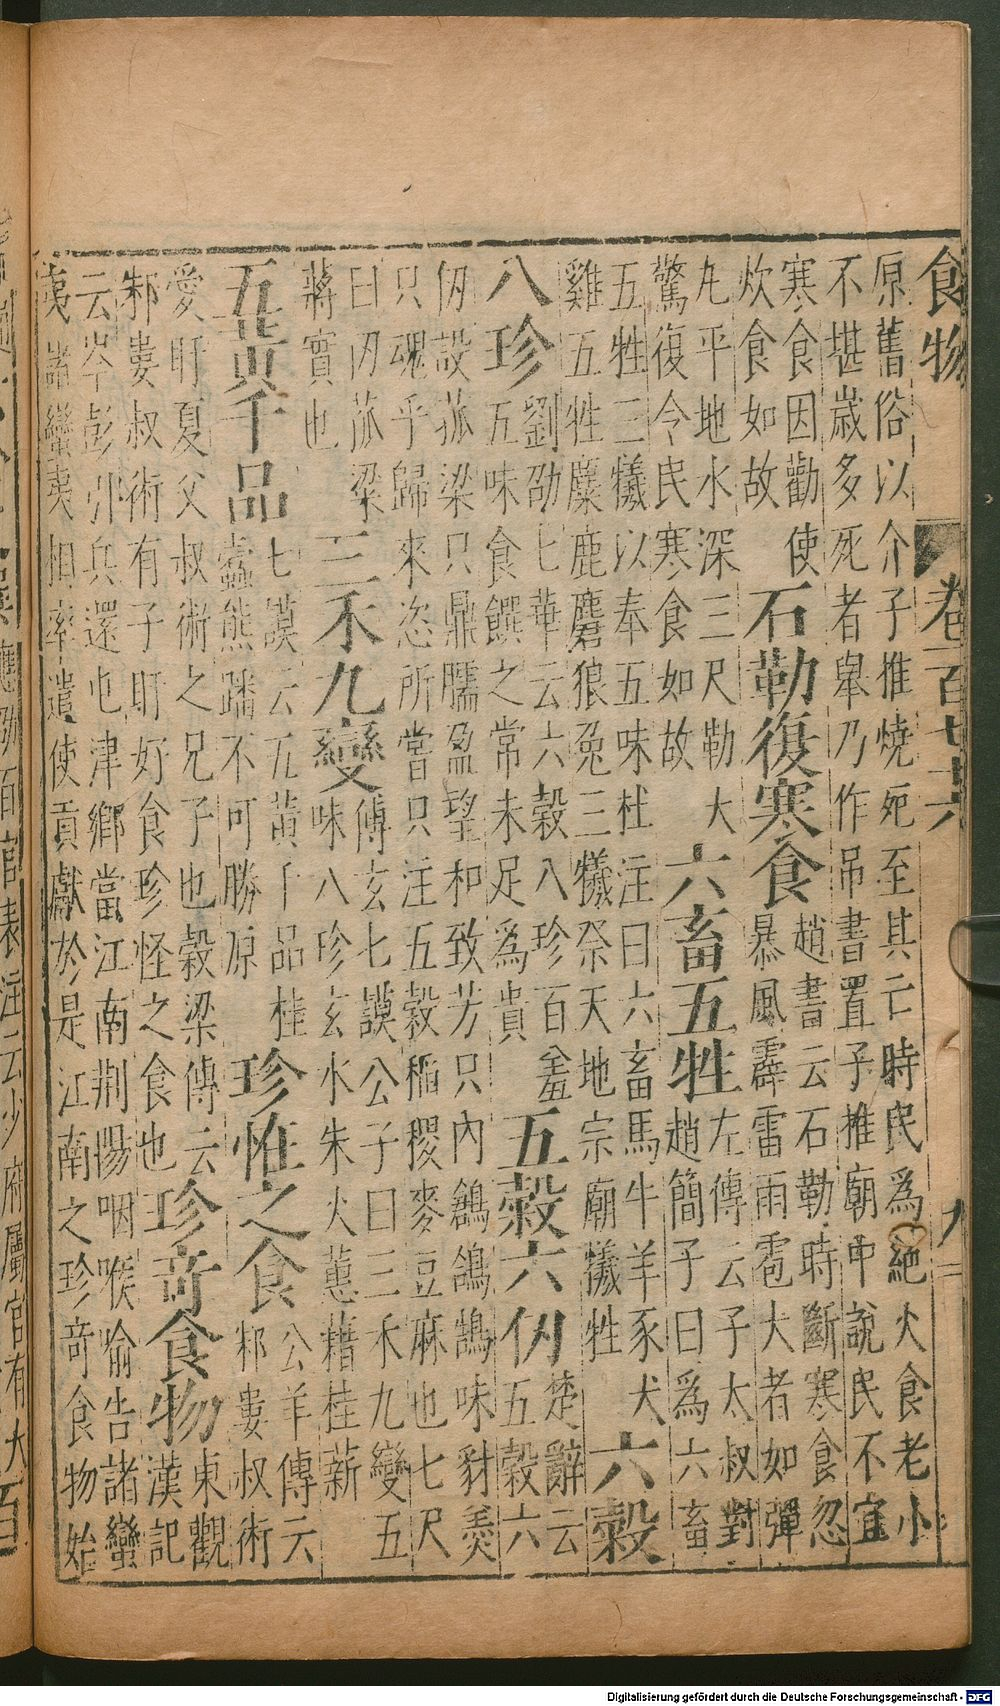 食物 卷一百七十六 九
原舊俗以介子推燒死至其亡時民為絕火食老小
不堪歲多死者舉乃作吊書置子推廟中說民不宜
寒食因勸使
炊食如故
石勒復寒食
趙書云石勒時斷寒食忽
暴風霹雷雨雹大者如彈
丸平地水深三尺勒大
驚復令民寒食如故
六畜五牲
左傳云子太叔對
趙簡子曰為六畜
五牲三犧以奉五味杜注曰六畜馬牛羊豕犬
雞五牲麋鹿麏狼兔三犧祭天地宗廟犧牲
六穀
八珍
劉劭七華云六穀八珍百羞
五味食饌之常未足為貴
五穀六仞
楚辭云
五穀六
仞設菰梁只鼎臑盈望和致芳只內鶬鴿鵠味豺羹
只魂乎歸來恣所嘗只注五穀稻稷麥豆麻也七尺
曰仞菰梁
蔣實也
三禾九變
傅玄七謨公子曰三禾九變五
味八珍玄水朱火蕙藉桂薪
五黃千品
七謨云五黃千品桂
蠹熊蹯不可勝原
珍惟之食
公羊傳云
邾婁叔術
愛盱夏父叔術之兄子也穀梁傳云
邾婁叔術有子盱好食珍怪之食也
珍奇食物
東觀
漢記
云岑彭引兵還屯津鄉當江南荊陽咽喉喻告諸蠻
夷諸蠻夷相率遣使貢獻於是江南之珍奇食物始
應劭百官表注云少府屬官有大
Digitalisierung gefördert durch die Deutsche Forschungsgemeinschaft - DFG